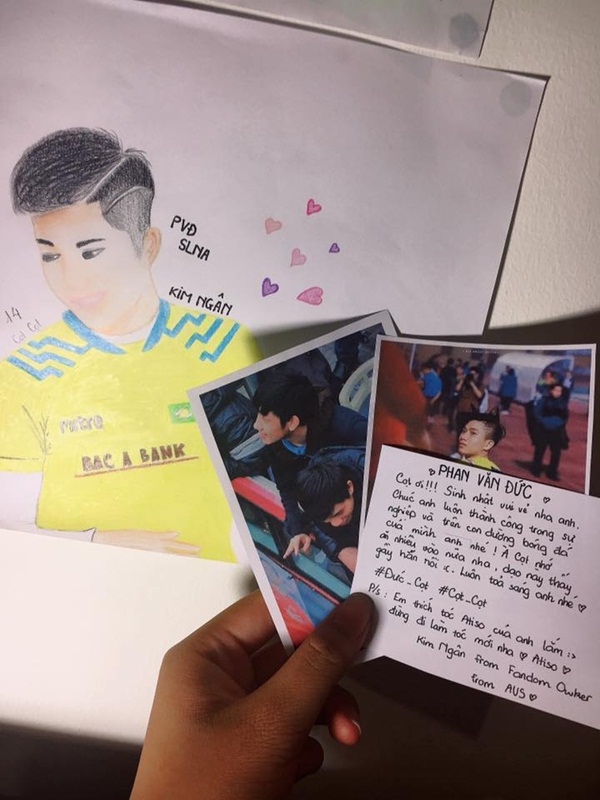 PVĐ
SLNA
KIM NGÂN
14
Cọt Cọt
BAC A BANK
PHAN VĂN ĐỨC
Cọt ơi!!! Sinh nhật vui vẻ nha anh.
Chúc anh luôn thành công trong sự
nghiệp và trên con đường bóng đá
của mình anh nhé! À Cọt nhớ
ăn nhiều vào nữa nha, dạo này thấy
gầy hẳn rồi :<. Luôn toả sáng anh nhé
#Đức_Cọt #Cọt_Cọt
P/s: Em thích tóc Atiso của anh lắm :>
đừng đi làm tóc mới nha Atiso
Kim Ngân from Fandom Owker
from AUS